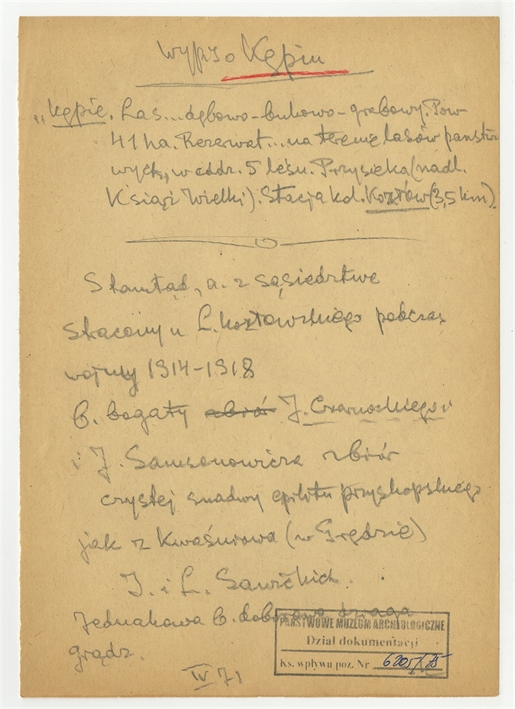 wypis o Kępiu
„Kępie. Las... dębowo-bukowo-grabowy. Pow
41 ha. Rezerwat... na terenie lasów państw
wych, w oddz. 5 leśn. Przysieka (nadl.
Książ Wielki). Stacja kol. Kozłów (3,5 km).
Stamtąd, a. z sąsiedztwa
stracony u L. Kozłowskiego podczas
wojny 1914-1918
b. bogaty zbiór J. Czarnockiego
i J. Samsonowicza zbiór
czystej
jak z Kwaśniowa (w Grędzie)
J. i L. Sawickich.
Jednakowa b.
grądz.
IV 71
PAŃSTWOWE MUZEUM ARCHEOLOGICZNE
Dział dokumentacji
Ks. wpływu poz. Nr